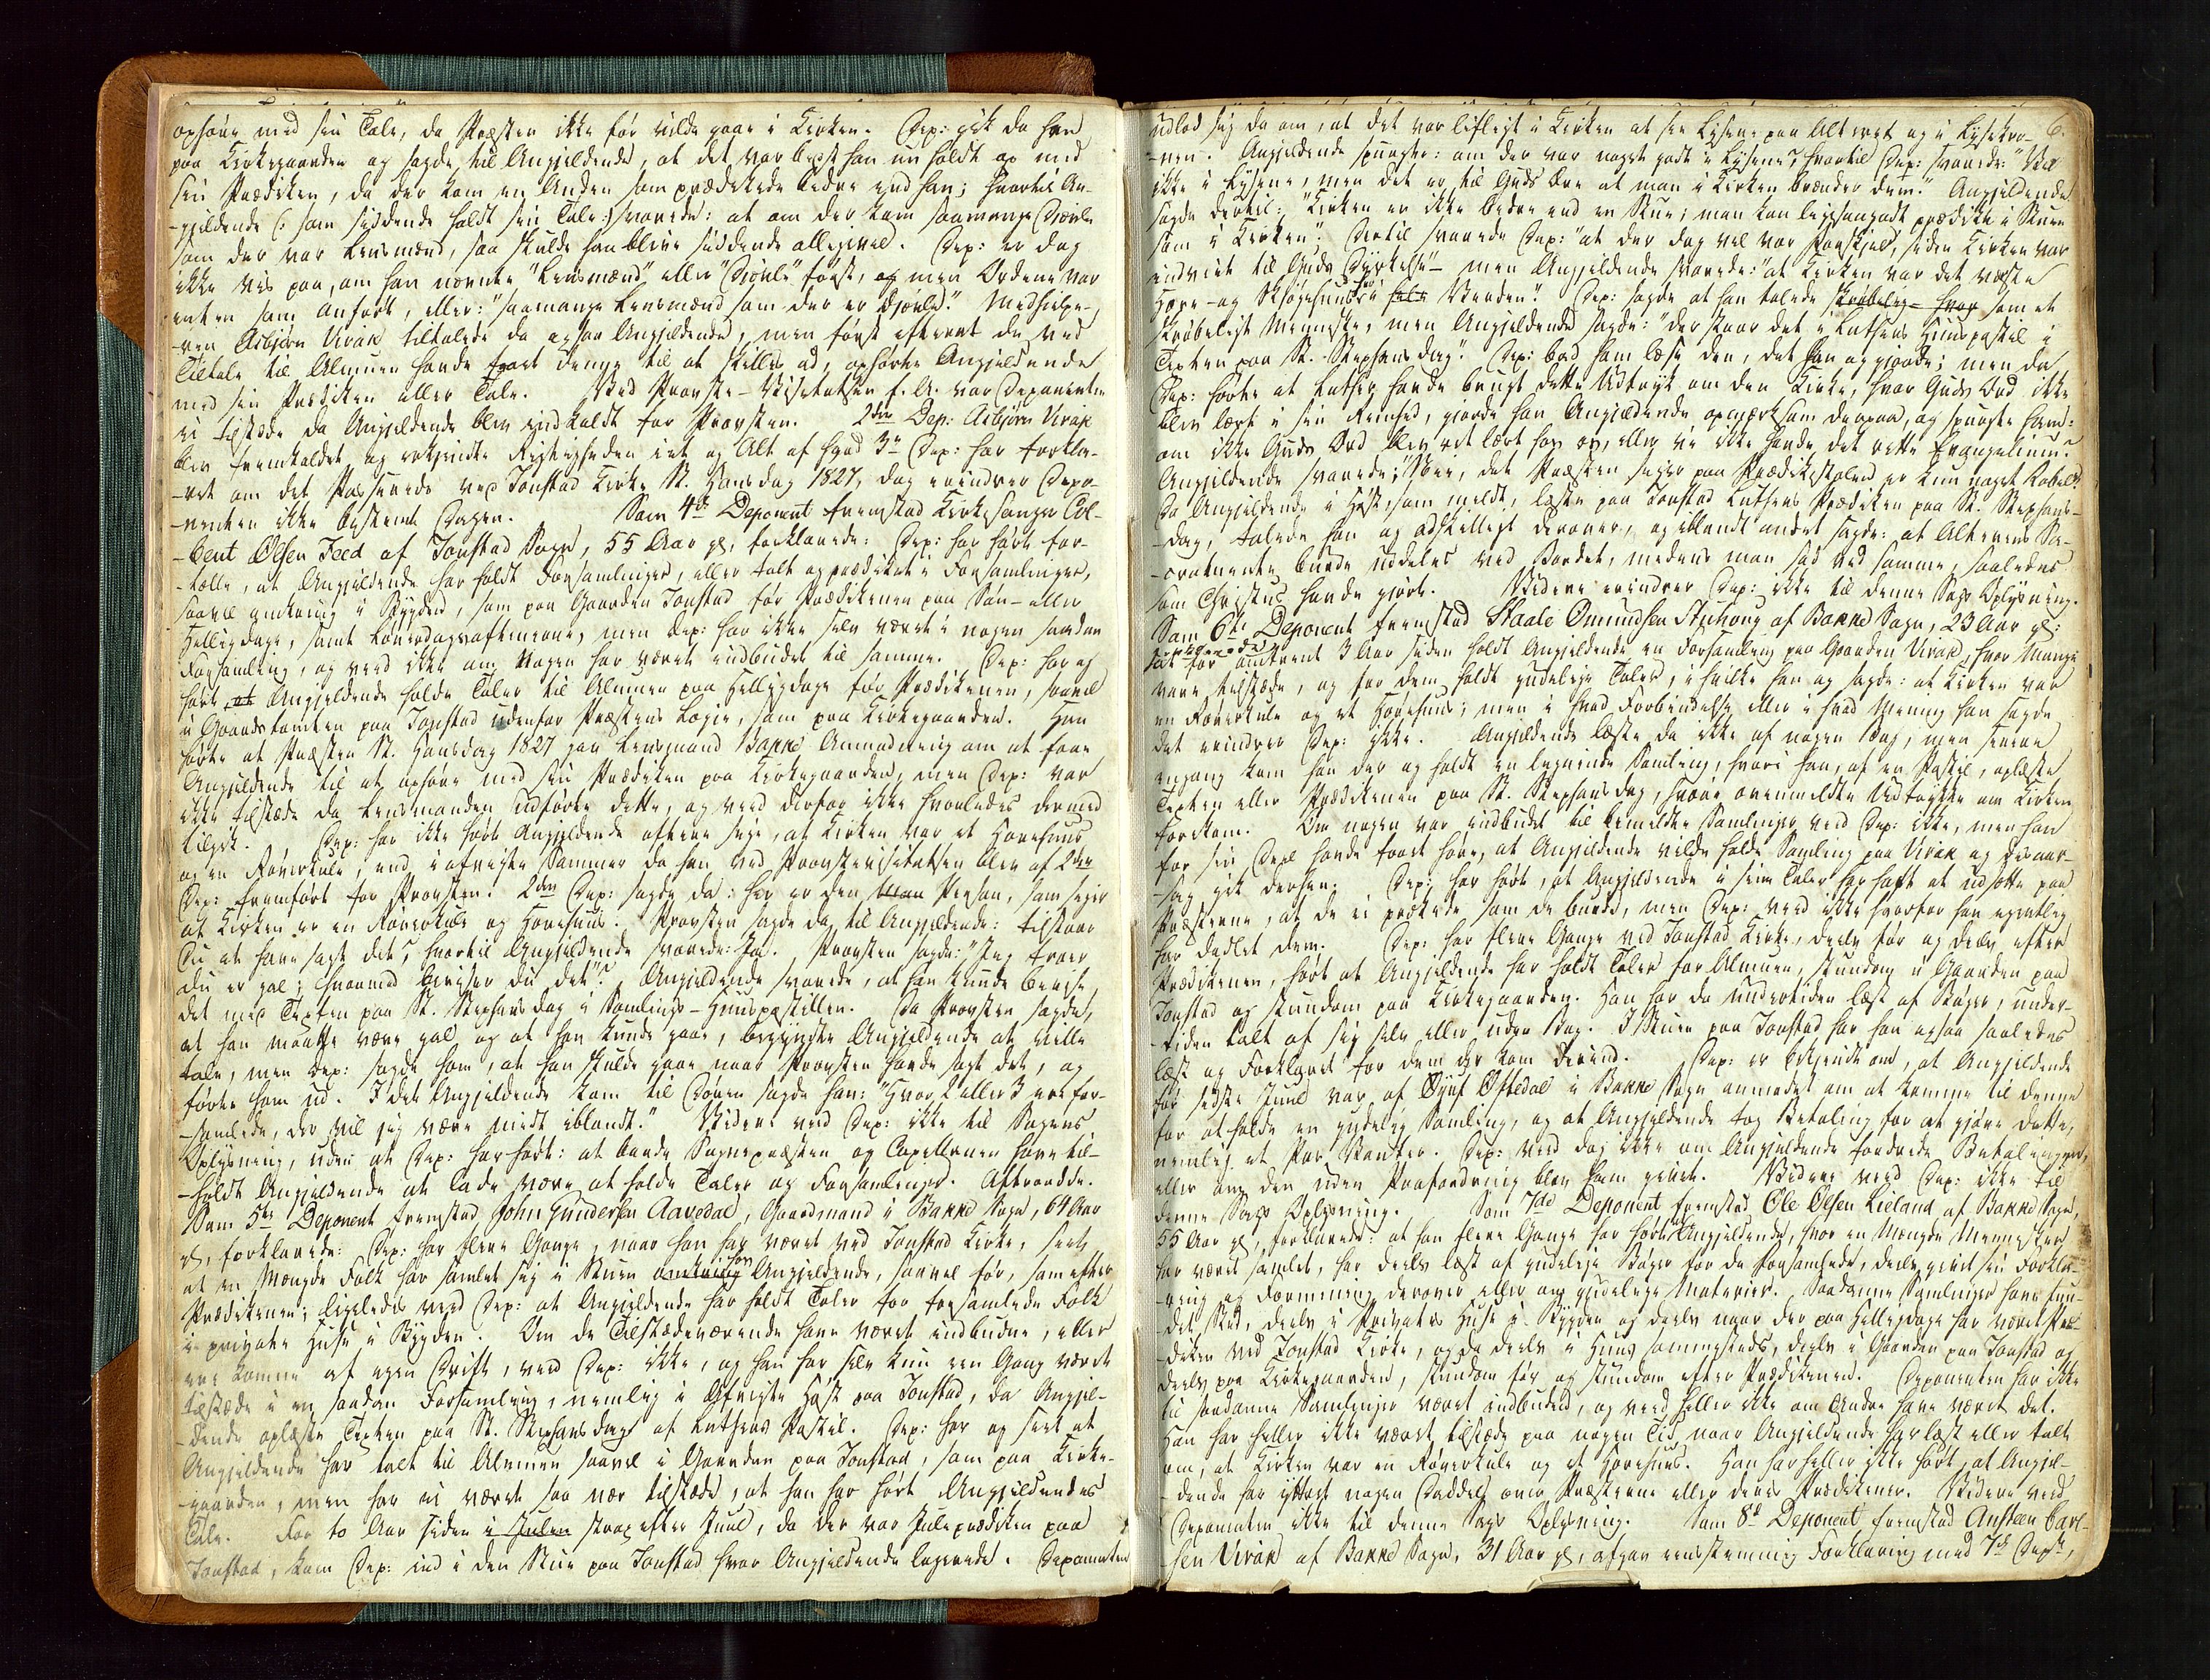 ophøre med sin Tale, da Præsten ikke før vilde gaae i Kirken. Dep: gik da hen
paa Kirkegaarden og sagde til Angjeldende, at det var bedst han nu holdt op med
sin Prædiken, da der kom en Anden som prædikede bedre end han; hvortil An-
-gjeldende (: som siddende holdt sin Tale:) svarede: at om der kom saamange Djævle
som der var Lensmænd, saa skulde han blive siddende alligevel. Dep: er dog
ikke vis paa, om han nævnte "Lensmænd" eller "Djævle" først, og men Ordene var
enten som anført, eller: "saamange Lensmænd som der er Djævle." Medhjelpe-
-ren Asbjørn Virak tiltalede da ogsaa Angjeldende, men først efterat de ved
Tiltale til Almuen havde faaet denne til at skilles ad, ophørte Angjeldende
med sin Prædiken eller Tale. Ved Provste-Visitatsen f. A. var Deponenten
ei tilstæde da Angjeldende blev indkaldt for Provsten. 2den Dep: Asbjørn Virak
blev fremkaldet, og erkjendte Rigtigheden i et og Alt af hvad 3e Dep: har forkla-
-ret om det Passerede ved Tonstad Kirke St. Hansdag 1827, dog erindrer Depo-
-nenten ikke bestemt Dagen. Som 4de Deponent fremstod Kirkesanger Col-
-bent Olsen Feed af Tonstad Sogn, 55 Aar gl., forklarede: Dep: har hørt for-
-tælle, at Angjeldende har holdt Forsamlinger, eller talt og prædiket i Forsamlinger,
saavel omkring i Bygden, som paa Gaarden Tonstad før Prædikenen paa Søn- eller
Helligdage, samt Løverdagsaftenerne, men Dep: har ikke selv været i nogen saadan
Forsamling, og veed ikke om Nogen har været indbudet til samme. Dep: har ei
hørt at Angjeldende holde Taler til Almuen paa Helligdage før Prædikenen, saavel
i Gaardstomten paa Tonstad udenfor Præstens Logie, som paa Kirkegaarden. Han
hørte at Præsten St. Hansdag 1827 gav Lensmand Bakke Anmodning om at faae
Angjeldende til at ophøre med sin Prædiken paa Kirkegaarden, men Dep: var
ikke tilstæde da Lensmanden udførte dette, og veed derfor ikke hvorledes dermed
tilgik. Dep: har ikke hørt Angjeldende oftere sige, at Kirken var et Horehuus
og en Røverkule, end i afvigte Sommer da han ved Provstevisitatsen blev af 2den
Dep: fremført for Provsten. 2den Dep: sagde da: her er den Person, som siger
at Kirken er en Røverkule og Horehuus. Provsten sagde da til Angjeldende: tilstaaer
Du at have sagt det?, hvortil Angjeldende svarede: Ja. Provsten sagde: "Jeg troer
du er gal; hvormed beviser du det"? Angjeldende svarede, at han kunde bevise
det med Texten paa St. Stephans Dag i Samlings-Huuspostillen. Da Provsten sagde,
at han maatte være gal og at han kunde gaae, begyndte Angjeldende at ville
tale, men Dep: sagde ham, at han skulde gaae naar Provsten havde sagt det, og
førte ham ud. I det Angjeldende kom til Døren sagde han: "Hvor 2 eller 3 ere for-
-samlede, der vil jeg være midt iblandt." Videre veed Dep: ikke til Sagens
Oplysning, uden at Dep: har hørt: at baade Sognepræsten og Capellanen have til-
-holdt Angjeldende at lade være at holde Taler og Forsamlinger. Aftraadte.
Som 5te Deponent fremstod John Gundersen Aavedal, Gaardmand i Bakke Sogn, 64 Aar
gl., forklarede: Dep: har flere Gange, naar han har været ved Tonstad Kirke, seet
at en Mængde Folk har samlet sig i Stuen omkring hos Angjeldende, saavel før, som efter
Prædikenen; ligeledes veed Dep: at Angjeldende har holdt Taler for forsamlede Folk
i private Huse i Bygden. Om de Tilstædeværende have været indbudne, eller
ere komne af egen Drift, veed Dep: ikke, og han har selv kun een Gang været
tilstæde i en saadan Forsamling, nemlig i Afvigte Høst paa Tonstad, da Angjel-
-dende oplæste Texten paa St. Stephans Dag af Luthers Postil. Dep: har og seet at
Angjeldende har talt til Almuen saavel i Gaarden paa Tonstad, som paa Kirke-
-gaarden, men har ei været saa nær tilstæde, at han har hørt Angjeldendes
Tale. For to Aar siden i Julen strax efter Juul, da der var Juleprædiken paa
Tonstad, kom Dep: ind i den Stue paa Tonstad hvor Angjeldende logerede. Deponenten
6.
udlod sig da om, at det var lifligt i Kirken at see Lysene paa Alteret og i Lysekro-
-nen. Angjeldende spurgte: om der var noget godt i Lysene?, hvortil Dep: svarede: "Vel
ikke i Lysene, men det er til Guds Ære at man i Kirken brænder dem." Angjeldende
sagde dertil: "Kirken er ikke bedre end en Stue; man kan ligesaagodt prædike i Stuen
som i Kirken". Dertil svarede Dep: "at der dog vel var Forskjel, siden Kirken var
indviet til Guds Dyrkelse" – men Angjeldende svarede: "at Kirken var det værste
Hore- og Skjøgehuus i hele Verden". Dep: sagde at han talede skrøbelig hvor som et
skrøbeligt Menneske, men Angjeldende sagde: "der staar det i Luthers Huuspostil i
Texten paa St. Stephans dag". Dep: bad ham læse den, det han og gjorde; men da
Dep: hørte at Luther havde brugt dette Udtryk om den Kirke, hvor Guds Ord ikke
blev lært i sin Reenhed, gjorde han Angjeldende opmærksom derpaa, og spurgte ham:
om ikke Guds Ord blev ret lært hos os, eller vi ikke havde det rette Evangelium?
Angjeldende svarede: "Nei, det Præsten siger paa Prædikestolen er kun noget Rabel".
Da Angjeldende i Høst, som meldt, læste paa Tonstad Luthers Prædiken paa St. Stephans-
-dag, talede han og adskilligt derover, og iblandt andet sagde: at Alterens Sa-
-cramente burde uddeles ved Bordet, medens man sad ved samme, saaledes
som Christus havde gjort. Videre erindrer Dep: ikke til denne Sags Oplysning.
Som 6te Deponent fremstod Staale Omundsen Stuhoug af Bakke Sogn, 23 Aar gl:
for omtrent 3 Aar siden holdt Angjeldende en Forsamling paa Gaarden Virak, hvor Mange
vare tilstæde, og for dem holdt gudelige Taler, i hvilke han og sagde: at Kirken var
en Røverkule og et Horehuus; men i hvad Forbindelse eller i hvad Mening han sagde
det erindrer Dep: ikke. Angjeldende læste da ikke af nogen Bog, men senere
engang kom han der og holdt en lignende Samling, hvori han, af en Postil, oplæste
Texten eller Prædikenen paa St. Stephansdag, hvori ovenmeldte Udtrykke om Kirken
forekom. Om nogen var indbudt til bemeldte Samlinger veed Dep: ikke, men han
for sin Deel havde faaet høre, at Angjeldende vilde holde Samling paa Virak og desaar-
-sag gik derhen. Dep: har hørt, at Angjeldende i sine Taler har havt at udsætte paa
Præsterne, at de ei prækede som de burde, men Dep: veed ikke hvorfor han egentlig
har dadlet dem. Dep: har flere Gange ved Tonstad Kirke, deels før og deels efter
Prædikenen, hørt at Angjeldende har holdt Taler for Almuen, stundom i Gaarden paa
Tonstad og stundom paa Kirkegaarden. Han har da undertiden læst af Bøger, under-
-tiden talt af sig selv eller uden Bog. I Stuen paa Tonstad har han ogsaa saaledes
læst og forklaret for dem der kom derind. Dep: er bekjendt om, at Angjeldende
før sidste Juul var af Ejuf Øftedal i Bakke Sogn anmodet om at komme til denne
for at holde en gudelig Samling, og at Angjeldende tog Betaling for at gjøre dette,
nemlig et Par Vanter. Dep: veed dog ikke om Angjeldende fordrede Betalingen,
eller om den uden Paafordring blev ham givet. Videre veed Dep: ikke til
denne Sags Oplysning. Som 7de Deponent fremstod Ole Olsen Lieland af Bakke Sogn,
55 Aar gl., forklarede: at han flere Gange har hørt Angjeldende, hvor en Mængde Mennesker
har været samlet, har deels læst af gudelige Bøger for de Forsamlede, deels givet sin Forkla-
-ring og Formening derover eller om gudelige Materier. Saadanne Samlinger have fun-
-det Sted, deels i Privates Huse i Bygden og deels naar der paa Helligdage har været Præ-
-diken ved Tonstad Kirke, og da deels i Huus sammesteds, deels i Gaarden paa Tonstad og
deels paa Kirkegaarden, stundom før og stundom efter Prædikenen. Deponenten har ikke
til saadanne Samlinger været indbuden, og veed heller ikke om Andre have været det.
Han har heller ikke været tilstæde paa nogen Tid, naar Angjeldende har læst eller talt
om, at Kirken var en Røverkule og et Horehuus. Han har heller ikke hørt, at Angjel-
-dende har yttret nogen Daddel over Præsterne eller deres Prædikener. Videre veed
Deponenten ikke til denne Sags Oplysning. Som 8de Deponent fremstod Ansteen Carl-
-sen Virak af Bakke Sogn, 31 Aar gl., afgav eenstemmig Forklaring med 7de Dept,